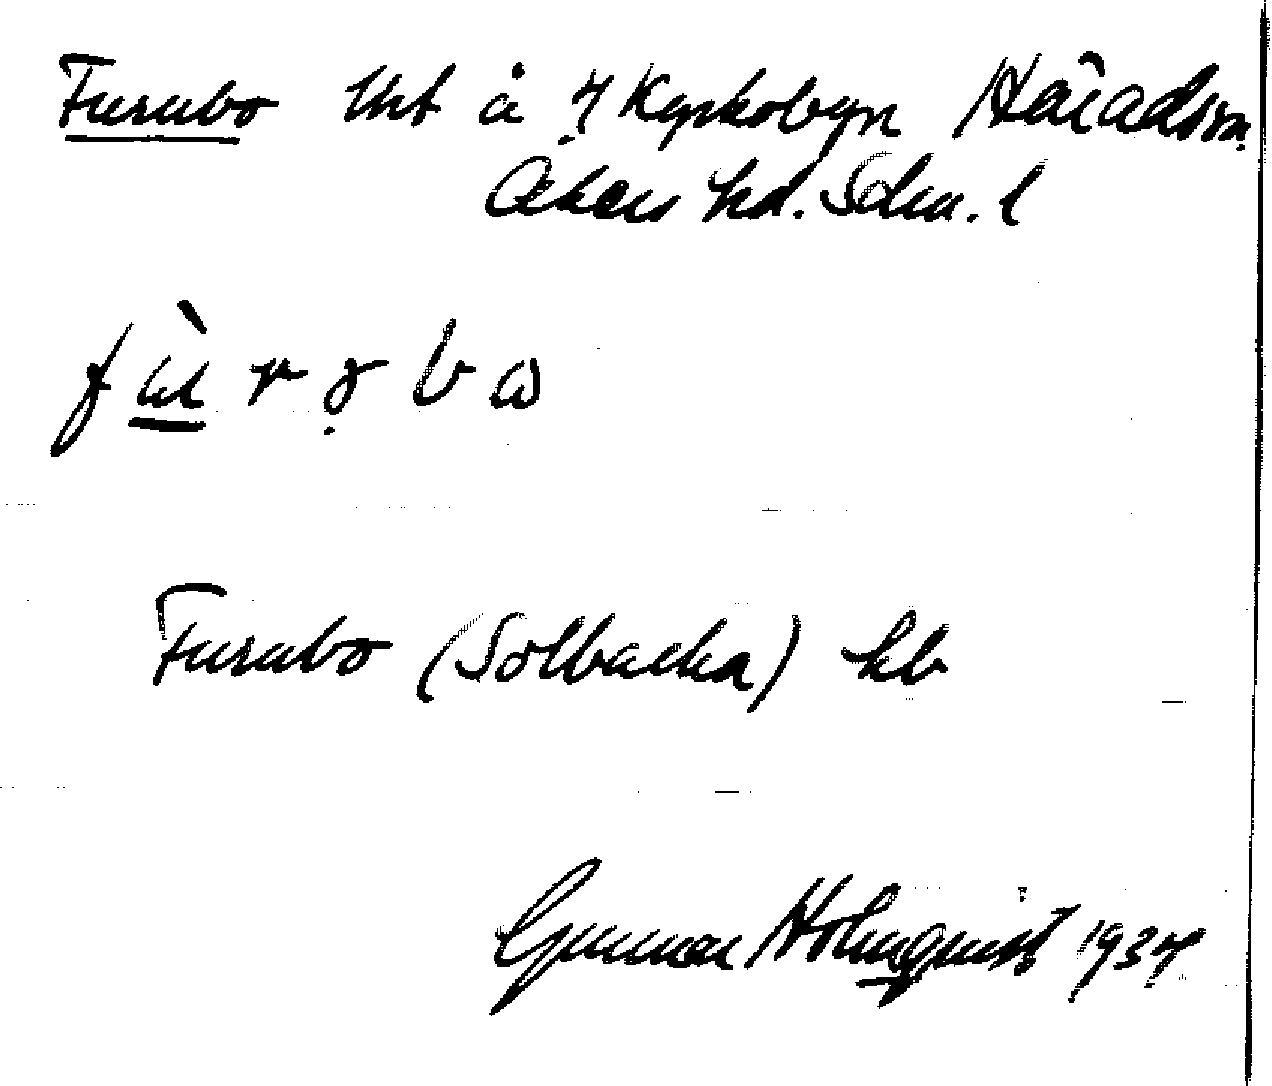 Furubo lht å 4 Kyrkobyn Härads sn.
Åkers hd. Södm. l
f ù r ɣ b ω
Furubo (Solbacka) kb
Gunnar Holmquist 1934